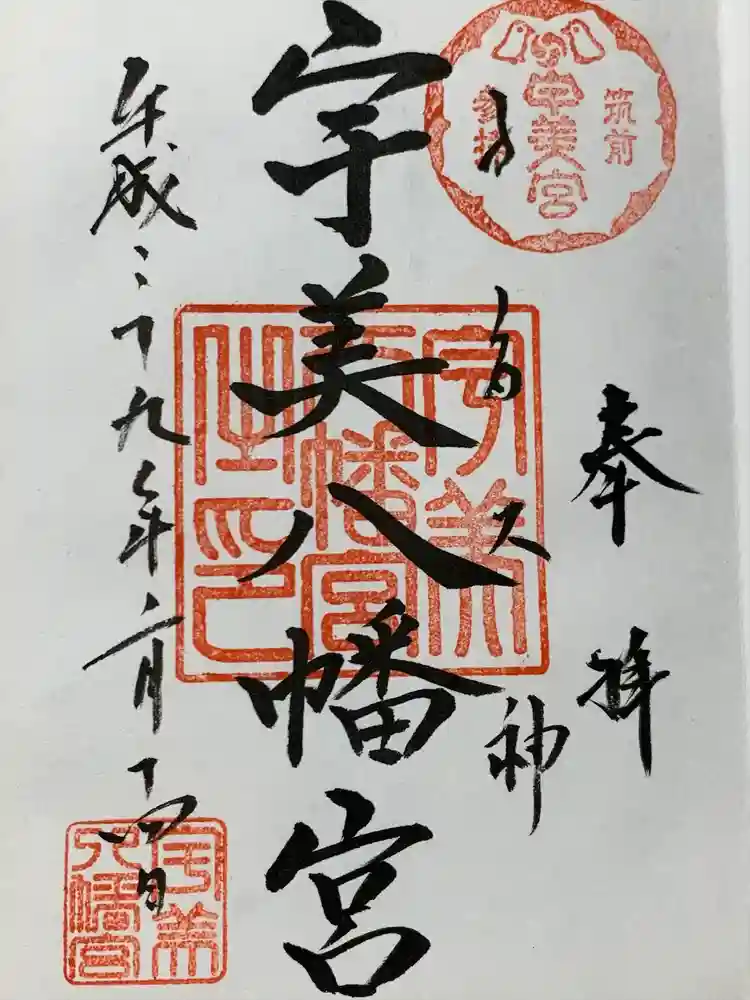 筑前
宇美宮
参拝
奉拝
子安大神
宇美八幡宮
宇美
八幡宮
之印
平成二十九年二月十四日
宇美
八幡宮